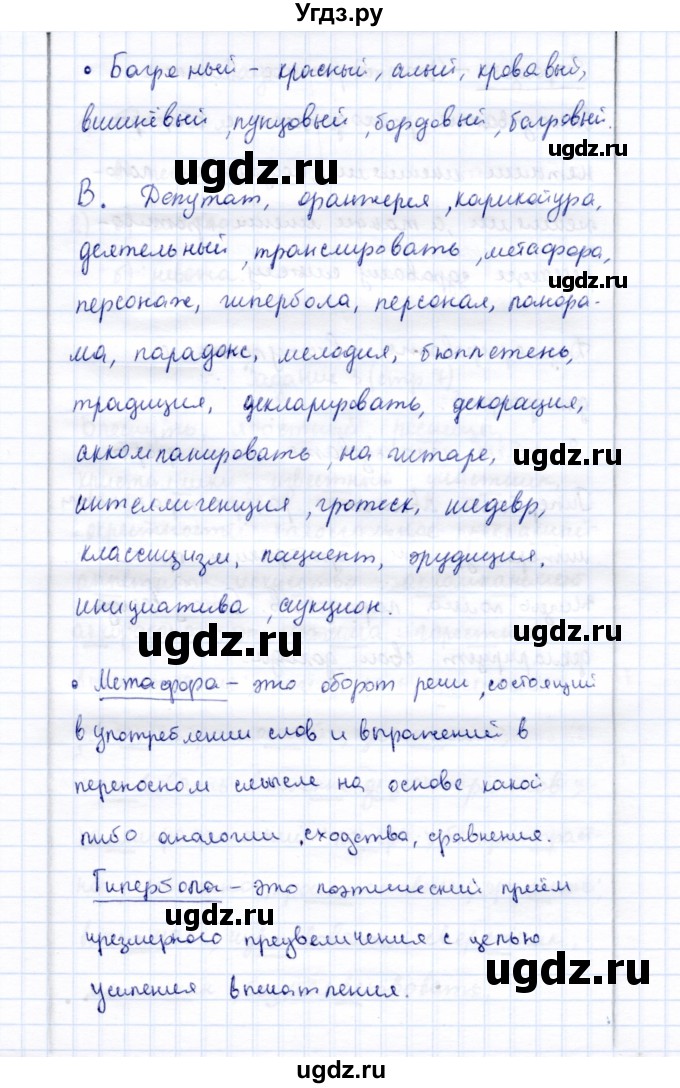 Угдз.ру
• Багряный – красный, алый, кровавый,
вишнёвый, пунцовый, бордовый, багровый.
ugdz.ru ugdz.ru
В. Депутат, оранжерея, карикатура,
деятельный, транслировать, метафора,
персонаж, гипербола, персонал, панора-
ма, парадокс, мелодия, бюллетень,
традиция, декларировать, декорация,
аккомпанировать, на гитаре,
ugdz.ru
интеллигенция, гротеск, шедевр,
классицизм, пациент, эрудиция,
инициатива, аукцион.
ugdz.ru
• Метафора – это оборот речи, состоящий
в употреблении слов и выражений в
переносном смысле на основе какой
либо аналогии, сходства, сравнения.
Гипербола – это поэтический приём
ugdz.ru
чрезмерного преувеличения с целью
ugdz.ru
усиления впечатления.
ugdz.ru